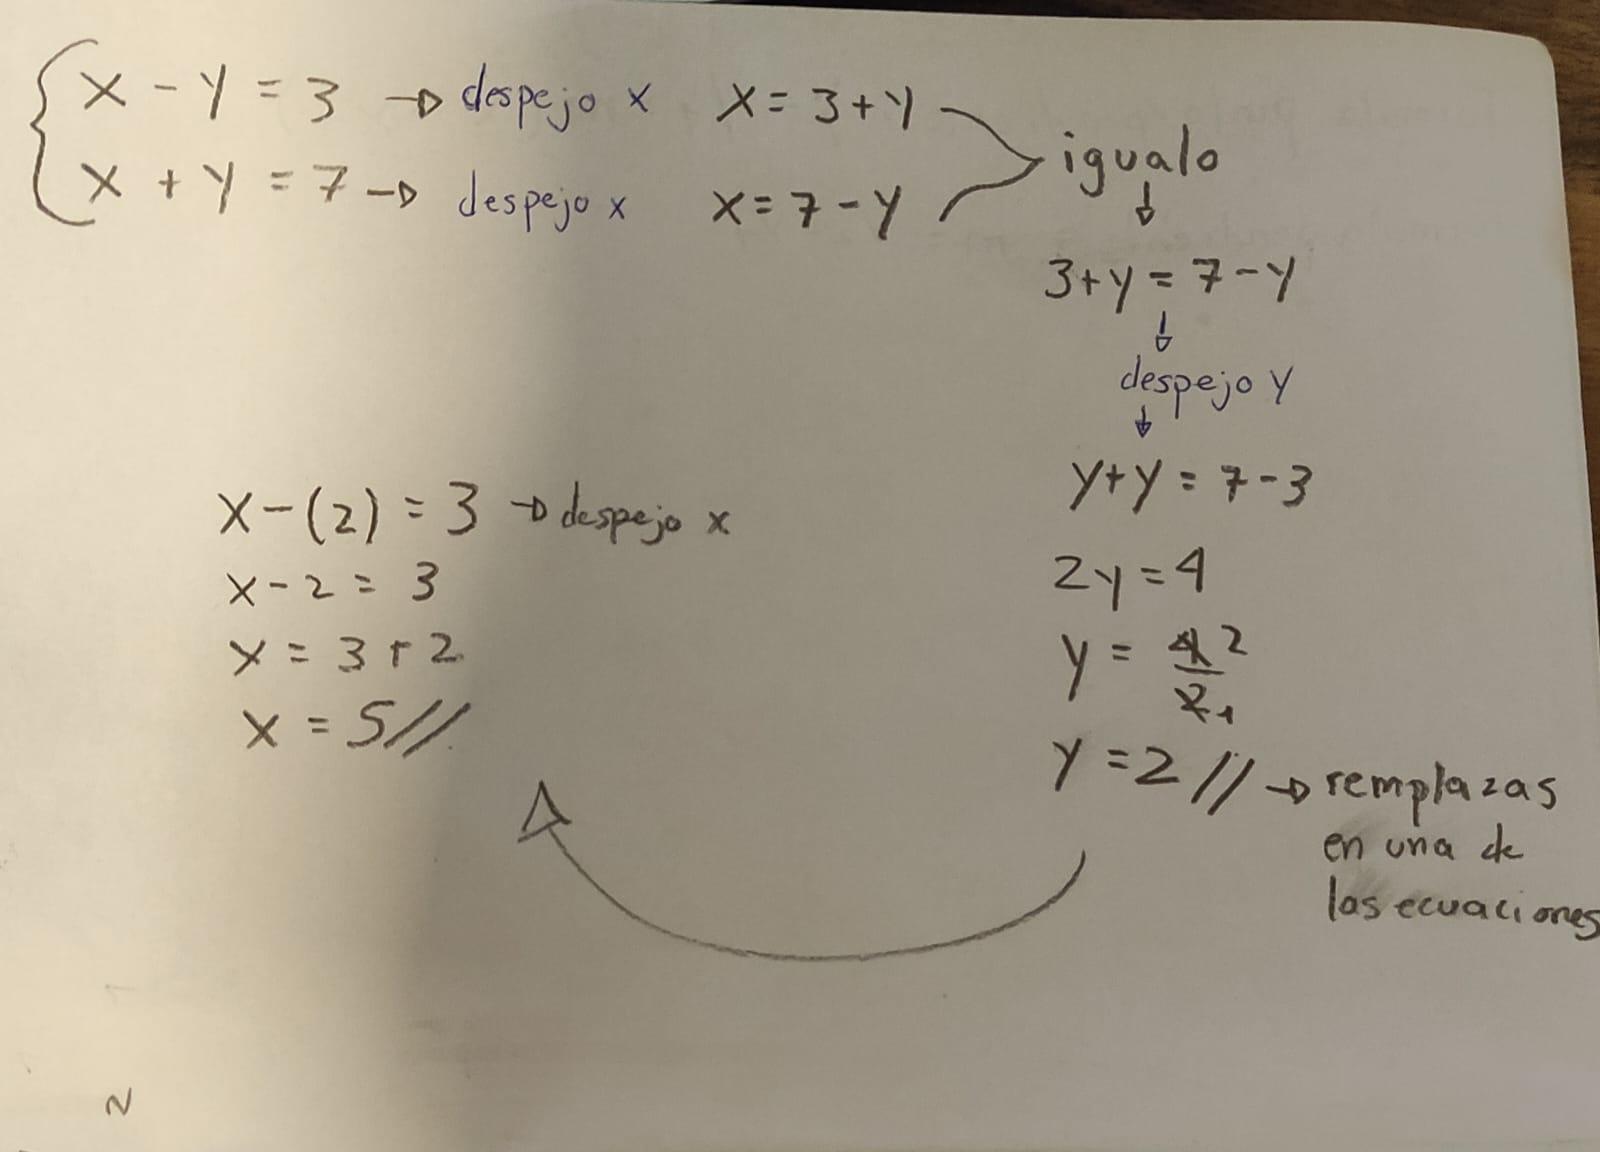 x - y = 3 → despejo x x = 3 + y
x + y = 7 → despejo x x = 7 - y
igualo
↓
3 + y = 7 - y
↓
despejo y
↓
y + y = 7 - 3
2y = 4
y = 4/2 2 1
y = 2 // → remplazas
en una de
las ecuaciones
x - (2) = 3 → despejo x
x - 2 = 3
x = 3 + 2
x = 5 //
N